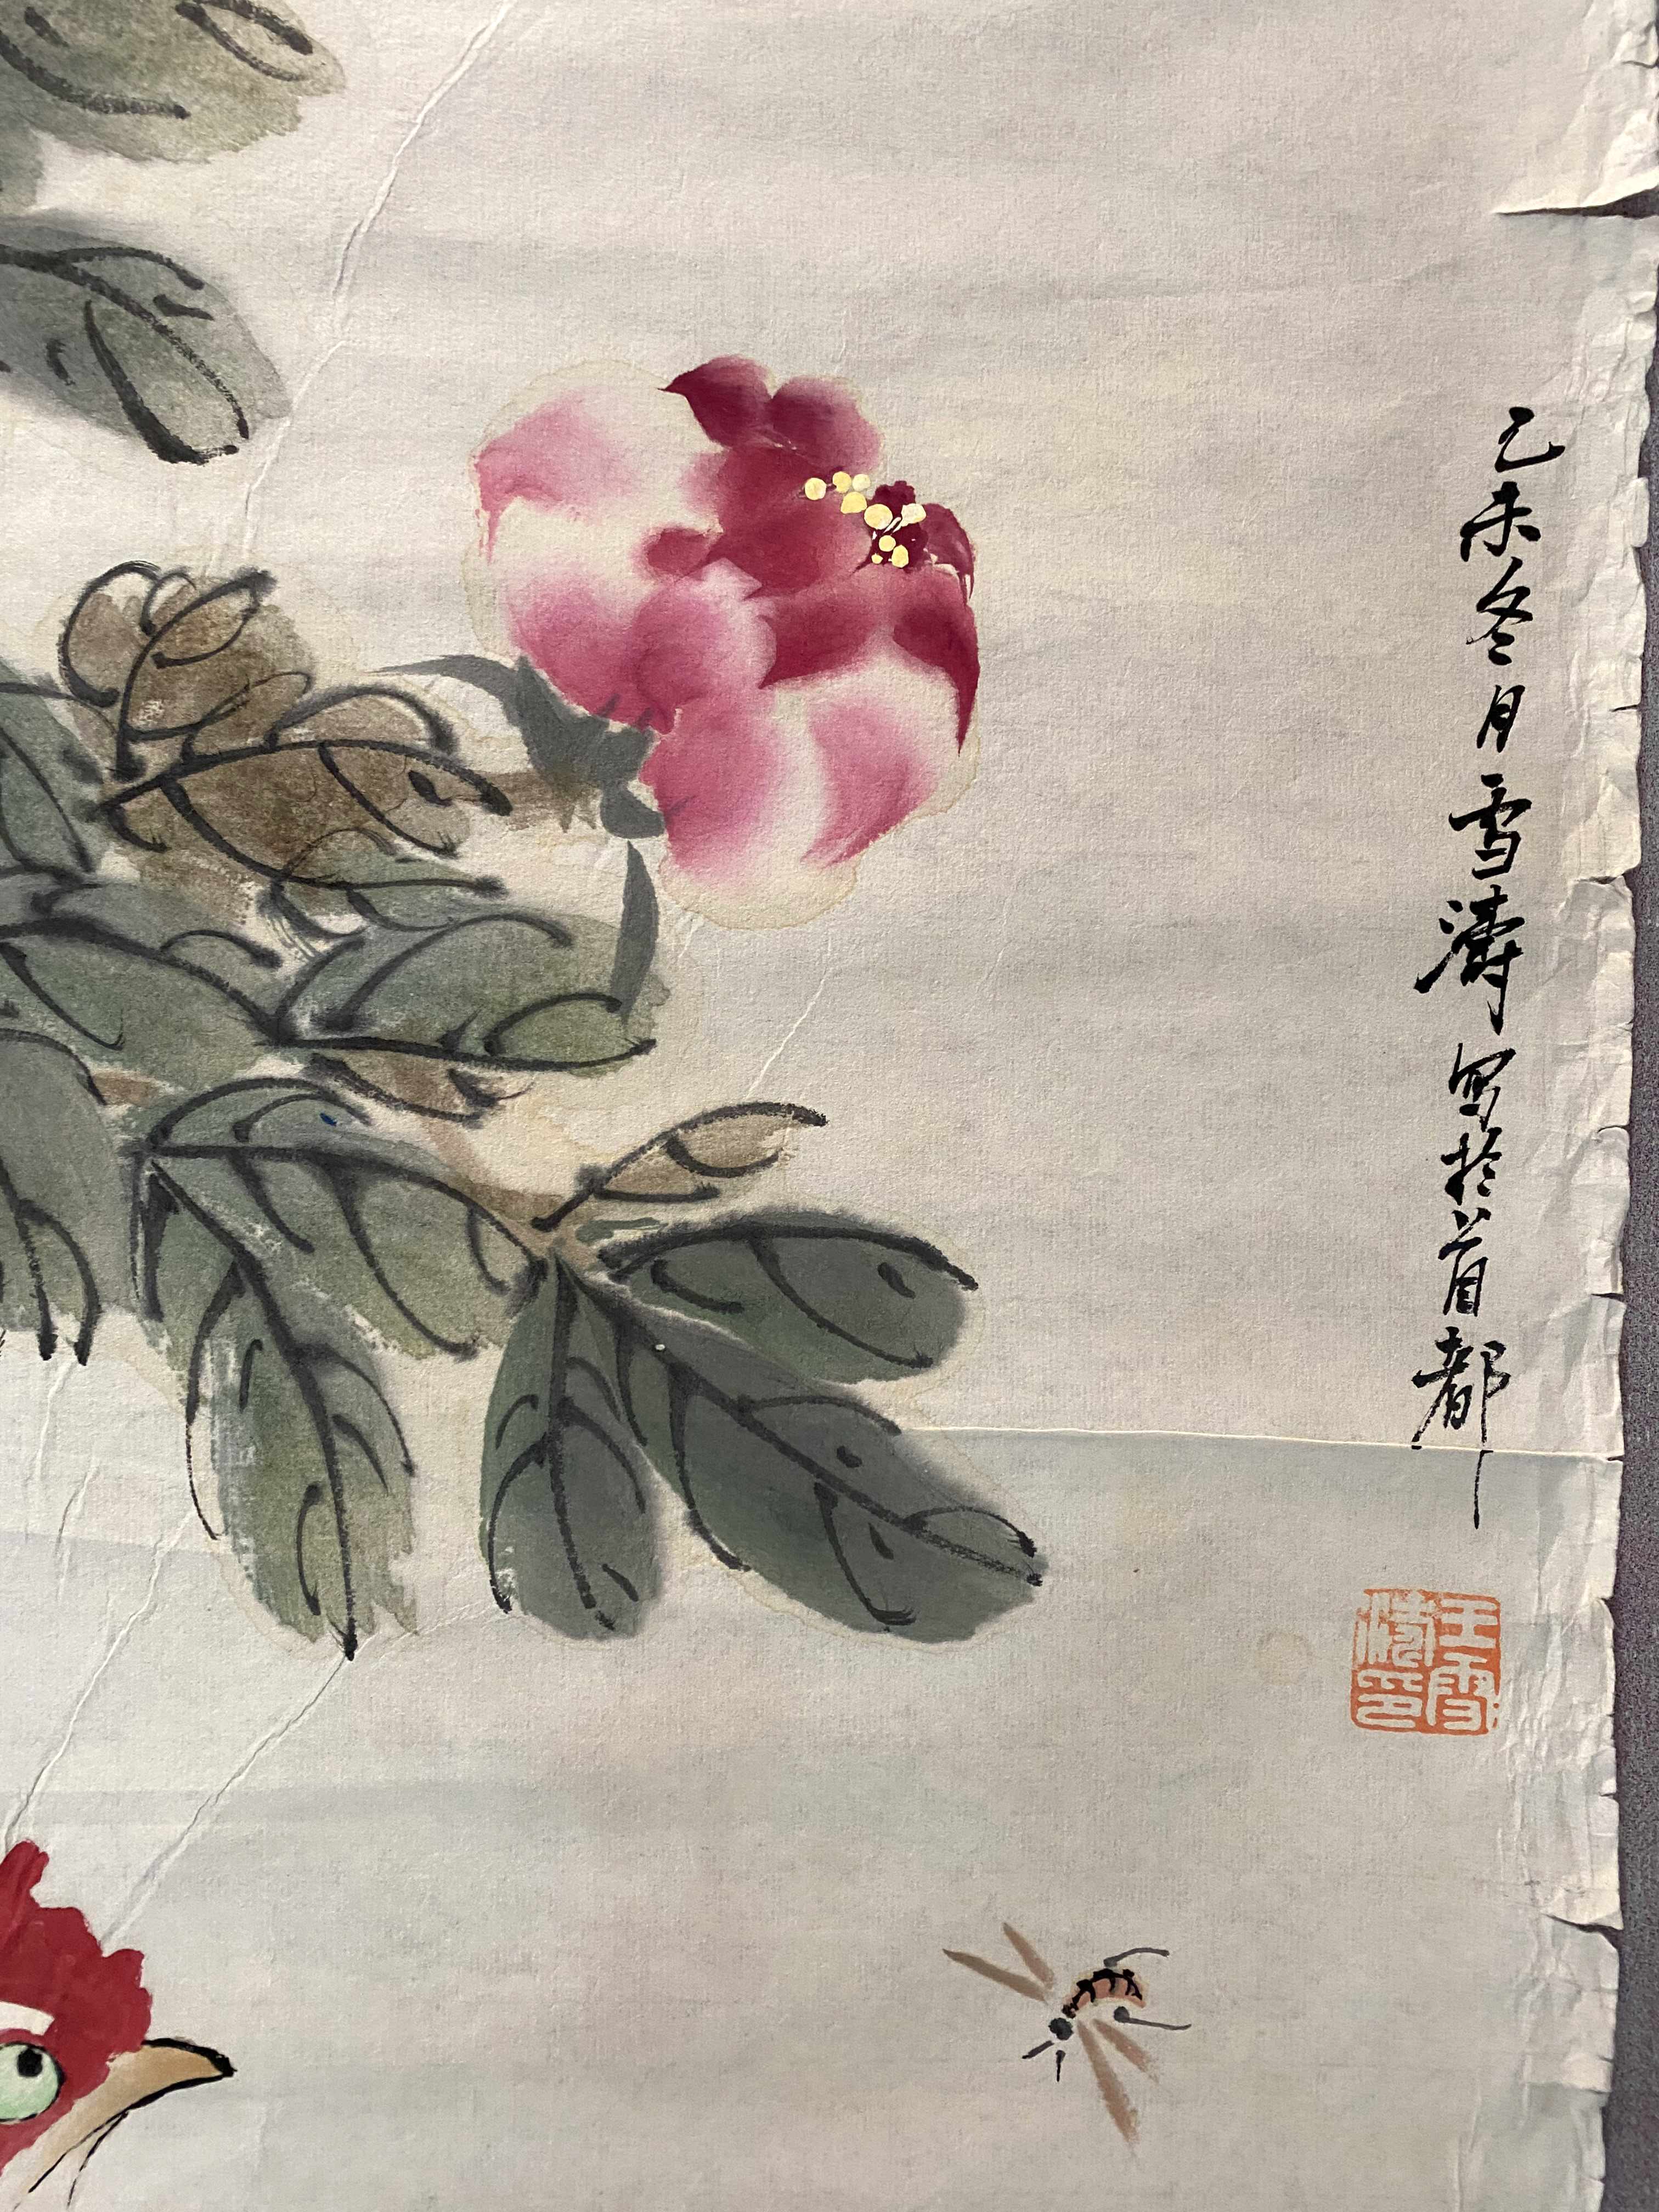 乙未冬月雪濤写於首都
王雪
濤印